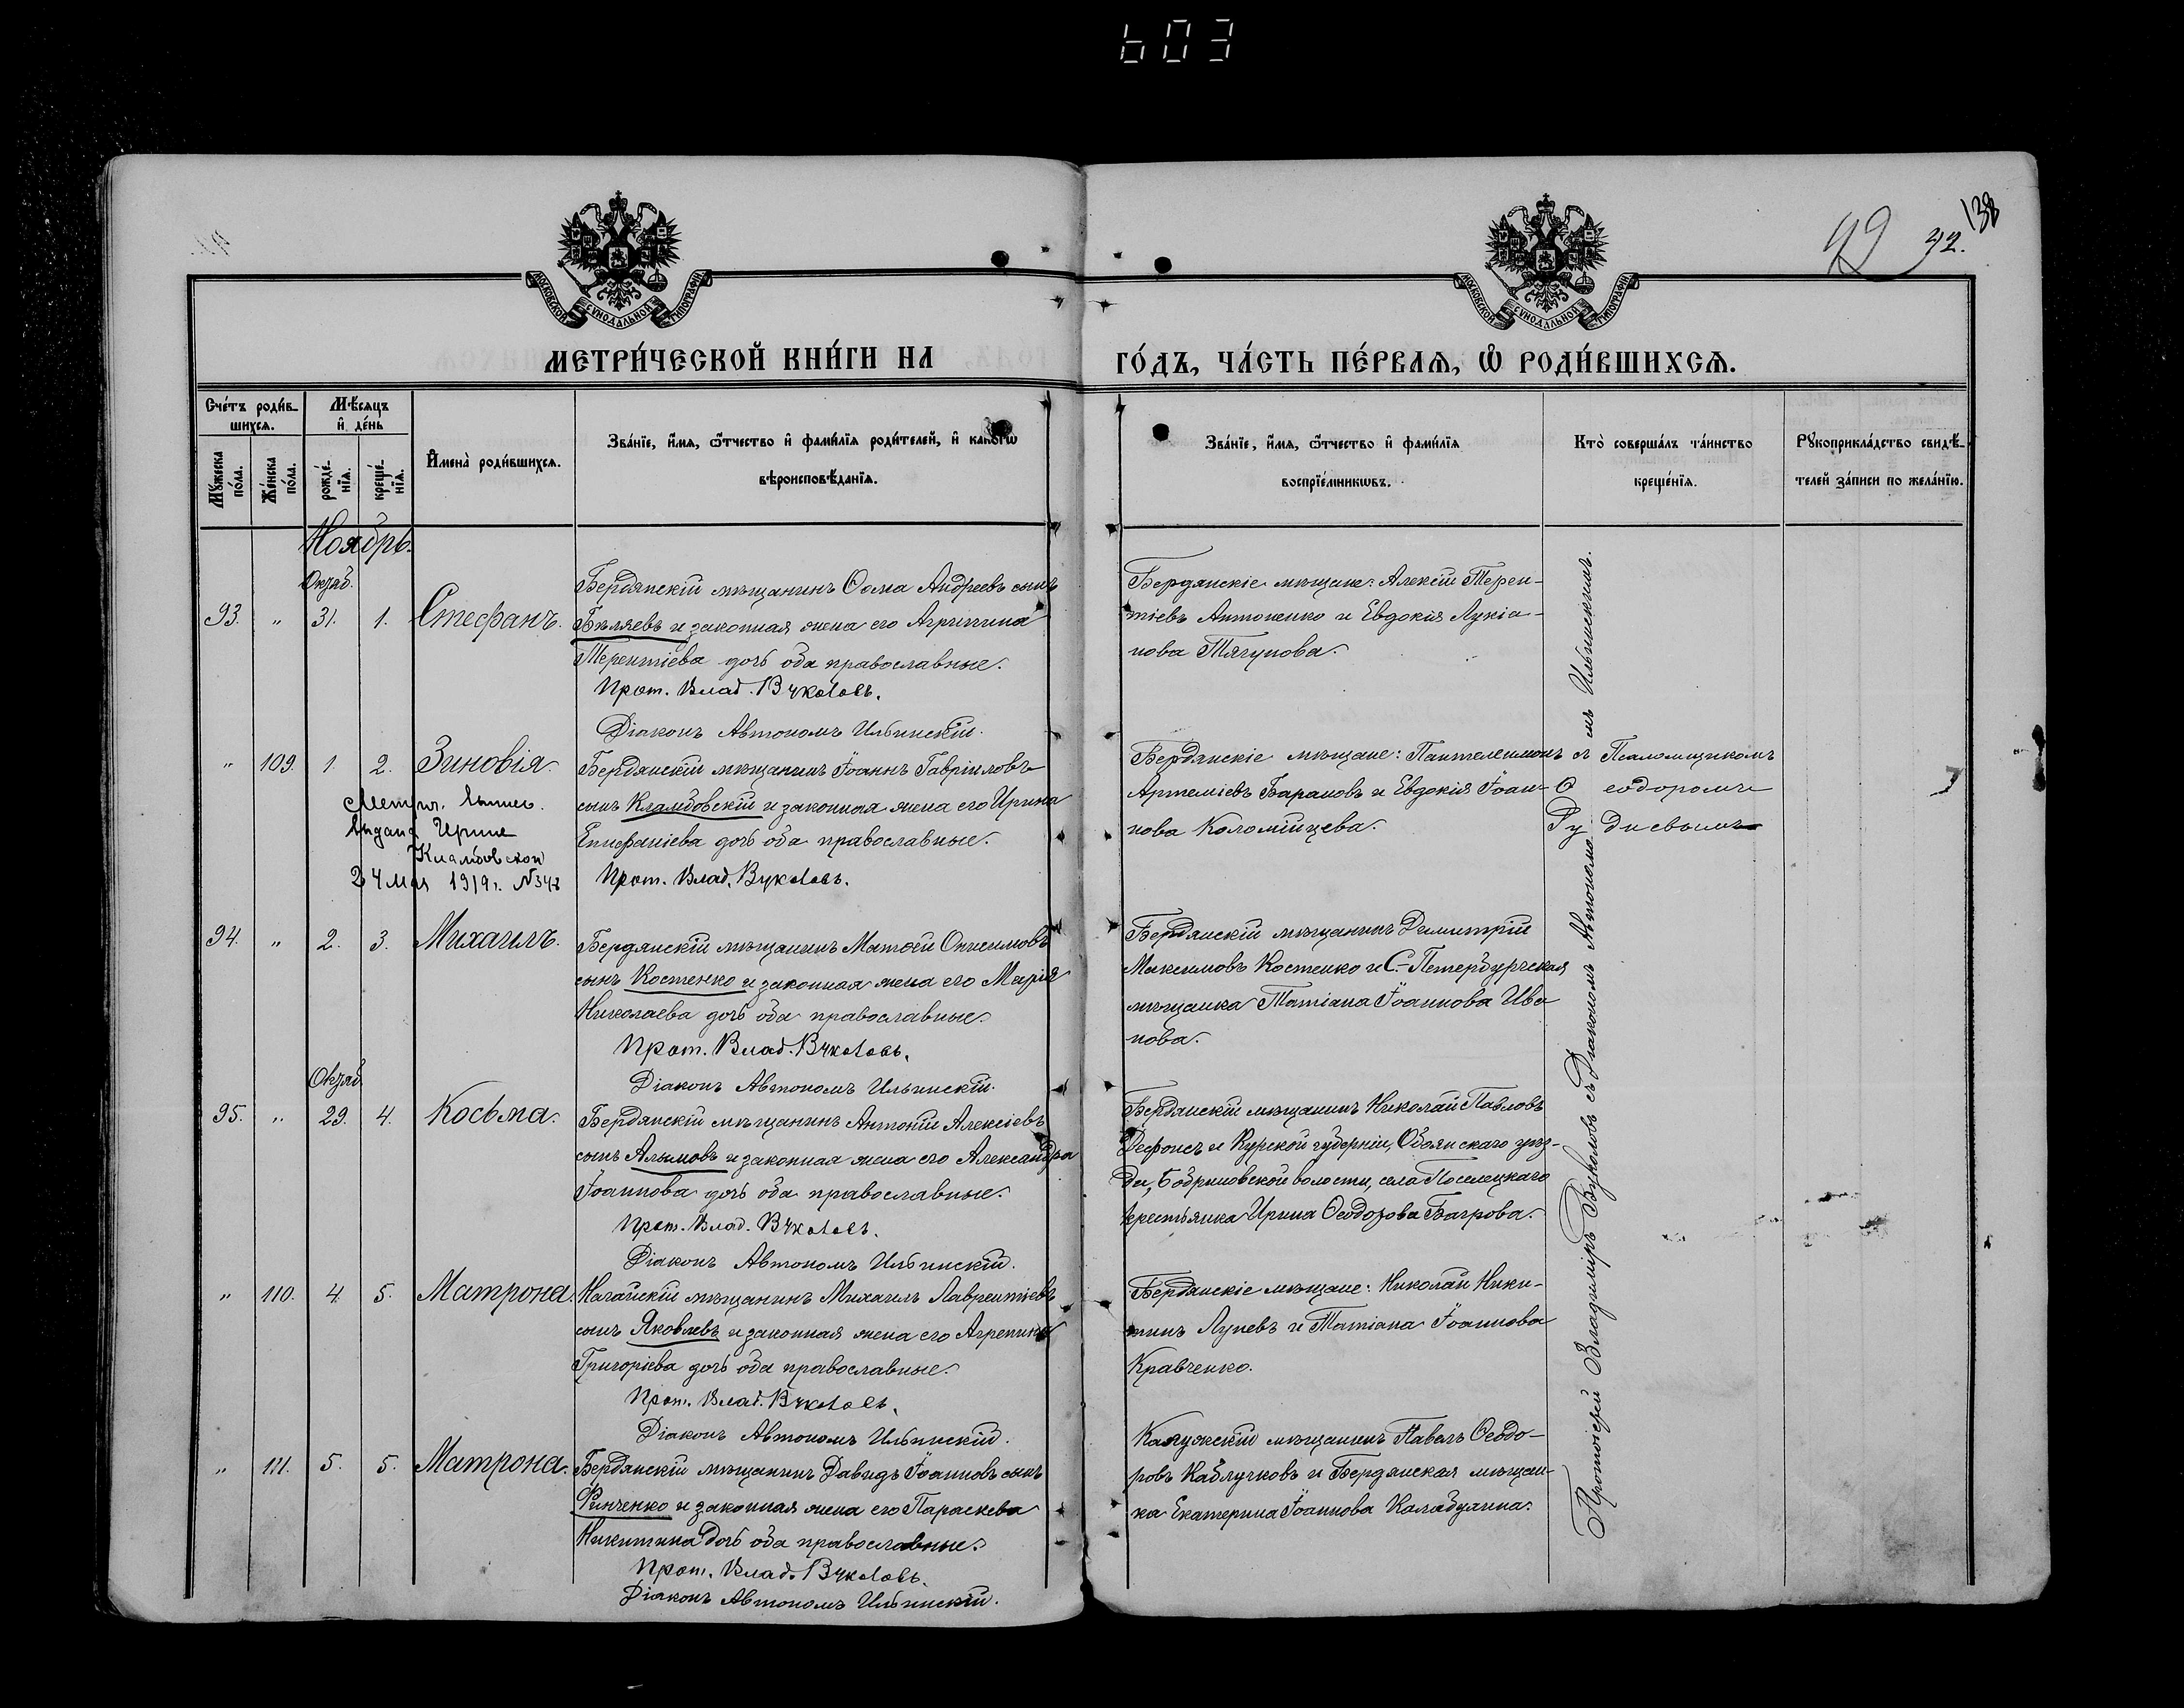 603
138
42 42.
МОСКОВСКОЙ СѴНОДАЛЬНОЙ ТИПОГРАФІИ
МОСКОВСКОЙ СѴНОДАЛЬНОЙ ТИПОГРАФІИ
МЕТРИ́ЧЕСКОЙ КНИ́ГИ НА ГО́ДЪ, ЧА́СТЬ ПЕ́РВАѦ, Ѡ҆ РОДИ́ВШИХСѦ.
Сче́тъ роди́в-
шихсѧ.
Мꙋ́жеска по́ла.
Же́нска по́ла.
Мѣ́сѧцъ
и҆ де́нь
рожде́-
нїѧ.
креще́-
нїѧ.
И҆мена̀ роди́вшихсѧ.
Зва́нїе, и҆́мѧ, ѻ҆́тчество и҆ фами́лїѧ роди́телей, и҆ како́гѡ
вѣроисповѣ́данїѧ.
Зва́нїе, и҆́мѧ, ѻ҆́тчество и҆ фами́лїѧ
воспрїе́мникѡвъ.
Кто̀ соверша́лъ та́инство
креще́нїѧ.
Рꙋкоприкла́дство свидѣ́-
телей за́писи по жела́нїю.
Ноябрь.
Октяб.
93. " 31. 1. Стефанъ.
Бердянскій мѣщанинъ Ѳома Андреевъ сынъ
Бѣляевъ и законная жена его Агриппина
Терентіева дочь оба православные.
Прот. Влад. Вуколовъ.
Діаконъ Автономъ Ильинскій.
Бердянскіе мѣщане: Алексій Терен-
тіевъ Антоненко и Евдокія Лукіа-
нова Тягунова.
" 109. 1. 2. Зиновія.
Метрич. выпис.
выдана Ирине
Кламбовской
24 мая 1919г. №
Бердянскій мѣщанинъ Іоаннъ Гавріиловъ
сынъ Кламбовскій и законная жена его Ирина
Епифаніева дочь оба православные.
Прот. Влад. Вуколовъ.
Бердянскіе мѣщане: Пантелеимонъ
Артеміевъ Барановъ и Евдокія Іоан-
нова Коломійцева.
съ Псаломщикомъ
Ѳеодоромъ
Рудневымъ
94. " 2. 3. Михаилъ.
Бердянскій мѣщанинъ Матѳей Онисимовъ
сынъ Костенко и законная жена его Марія
Николаева дочь оба православные.
Прот. Влад. Вуколовъ.
Діаконъ Автономъ Ильинскій.
Бердянскій мѣщанинъ Димитрій
Максимовъ Костенко и С.-Петербургская
мѣщанка Татіана Іоаннова Ива
нова.
Октяб.
95. " 29. 4. Косьма.
Бердянскій мѣщанинъ Антоній Алексіевъ
сынъ Алымовъ и законная жена его Александра
Іоаннова дочь оба православные.
Прот. Влад. Вуколовъ.
Діаконъ Автономъ Ильинскій.
Бердянскій мѣщанинъ Николай Павловъ
и Курской губерніи, Обоянскаго уѣз-
да, волости, села
крестьянка Ирина Ѳеодорова Багрова.
" 110. 4. 5. Матрона.
Ногайскій мѣщанинъ Михаилъ Лаврентіевъ
сынъ Яковлевъ и законная жена его Агрепина
Григоріева дочь оба православные.
Прот. Влад. Вуколовъ.
Діаконъ Автономъ Ильинскій.
Бердянскіе мѣщане: Николай Ники-
тинъ Луневъ и Татіана Іоаннова
Кравченко.
" 111. 5. 5. Матрона.
Бердянскій мѣщанинъ Давидъ Іоанновъ сынъ
Финченко и законная жена его Параскева
Никитина дочь оба православные.
Прот. Влад. Вуколовъ.
Діаконъ Автономъ Ильинскій.
Калужскій мѣщанинъ Павелъ Ѳеодо-
ровъ Каблучковъ и Бердянская мѣщан-
ка Екатерина Іоаннова
Протоіерей Владиміръ Вуколовъ съ Діакономъ Автономомъ Ильинскимъ.